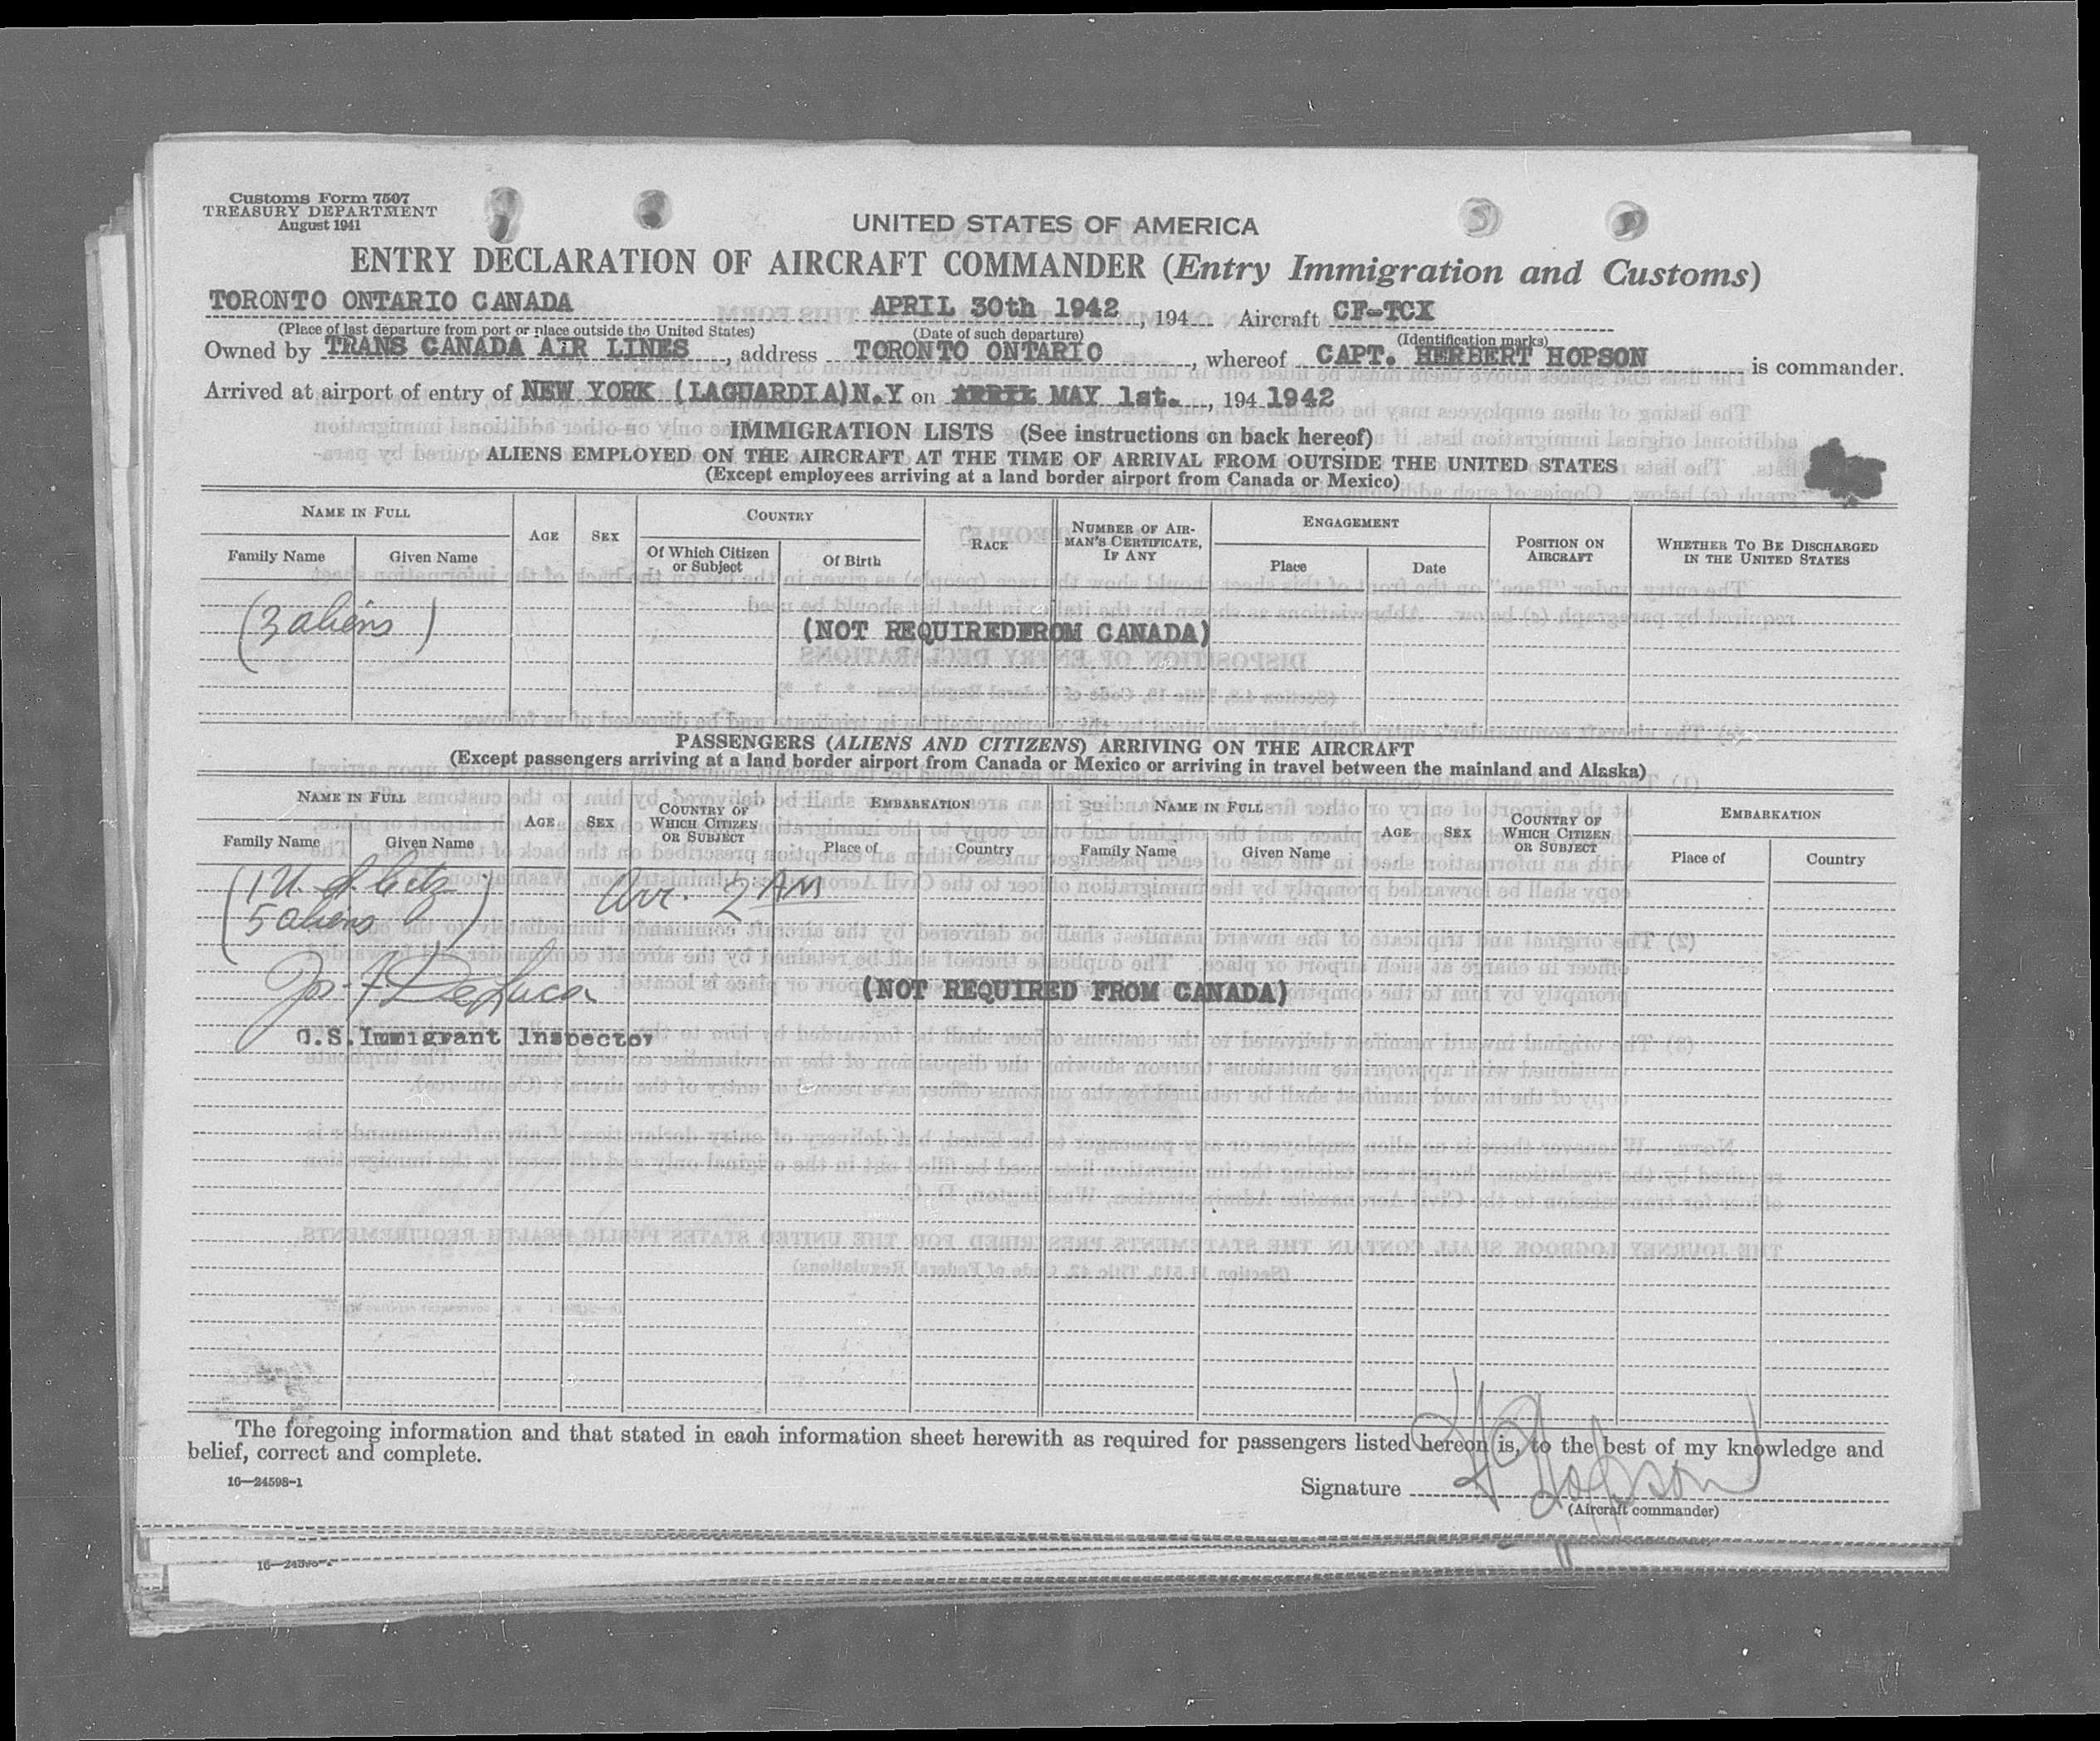 Customs Form 7507
TREASURY DEPARTMENT
August 1941
UNITED STATES OF AMERICA
ENTRY DECLARATION OF AIRCRAFT COMMANDER (Entry Immigration and Customs)
TORONTO ONTARIO CANADA APRIL 30th 1942, 194 Aircraft CF-TCX
(Place of last departure from port or place outside the United States) (Date of such departure) (Identification marks)
Owned by TRANS CANADA AIR LINES, address TORONTO ONTARIO, whereof CAPT. HERBERT HOPSON is commander.
Arrived at airport of entry of NEW YORK (LAGUARDIA)N.Y on APRIL MAY 1st., 194 1942
IMMIGRATION LISTS (See instructions on back hereof)
ALIENS EMPLOYED ON THE AIRCRAFT AT THE TIME OF ARRIVAL FROM OUTSIDE THE UNITED STATES
(Except employees arriving at a land border airport from Canada or Mexico)
NAME IN FULL AGE SEX COUNTRY RACE NUMBER OF AIRMAN'S CERTIFICATE, IF ANY ENGAGEMENT POSITION ON AIRCRAFT WHETHER TO BE DISCHARGED IN THE UNITED STATES
Family Name Given Name Of Which Citizen or Subject Of Birth Place Date
(3 aliens)
(NOT REQUIREDFROM CANADA)
PASSENGERS (ALIENS AND CITIZENS) ARRIVING ON THE AIRCRAFT
(Except passengers arriving at a land border airport from Canada or Mexico or arriving in travel between the mainland and Alaska)
NAME IN FULL AGE SEX COUNTRY OF WHICH CITIZEN OR SUBJECT EMBARKATION NAME IN FULL AGE SEX COUNTRY OF WHICH CITIZEN OR SUBJECT EMBARKATION
Family Name Given Name Place of Country Family Name Given Name Place of Country
(1 U. S. Citz
5 aliens)
Arr. 2 AM
Jos. F DeLuca
(NOT REQUIRED FROM CANADA)
U.S. Immigrant Inspector
The foregoing information and that stated in each information sheet herewith as required for passengers listed hereon is, to the best of my knowledge and
belief, correct and complete.
16—24598-1
Signature H Hopson
(Aircraft commander)